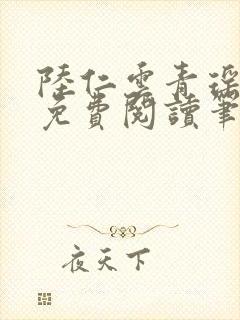 陸仁雲青瑤
免費閱讀筆
夜天下